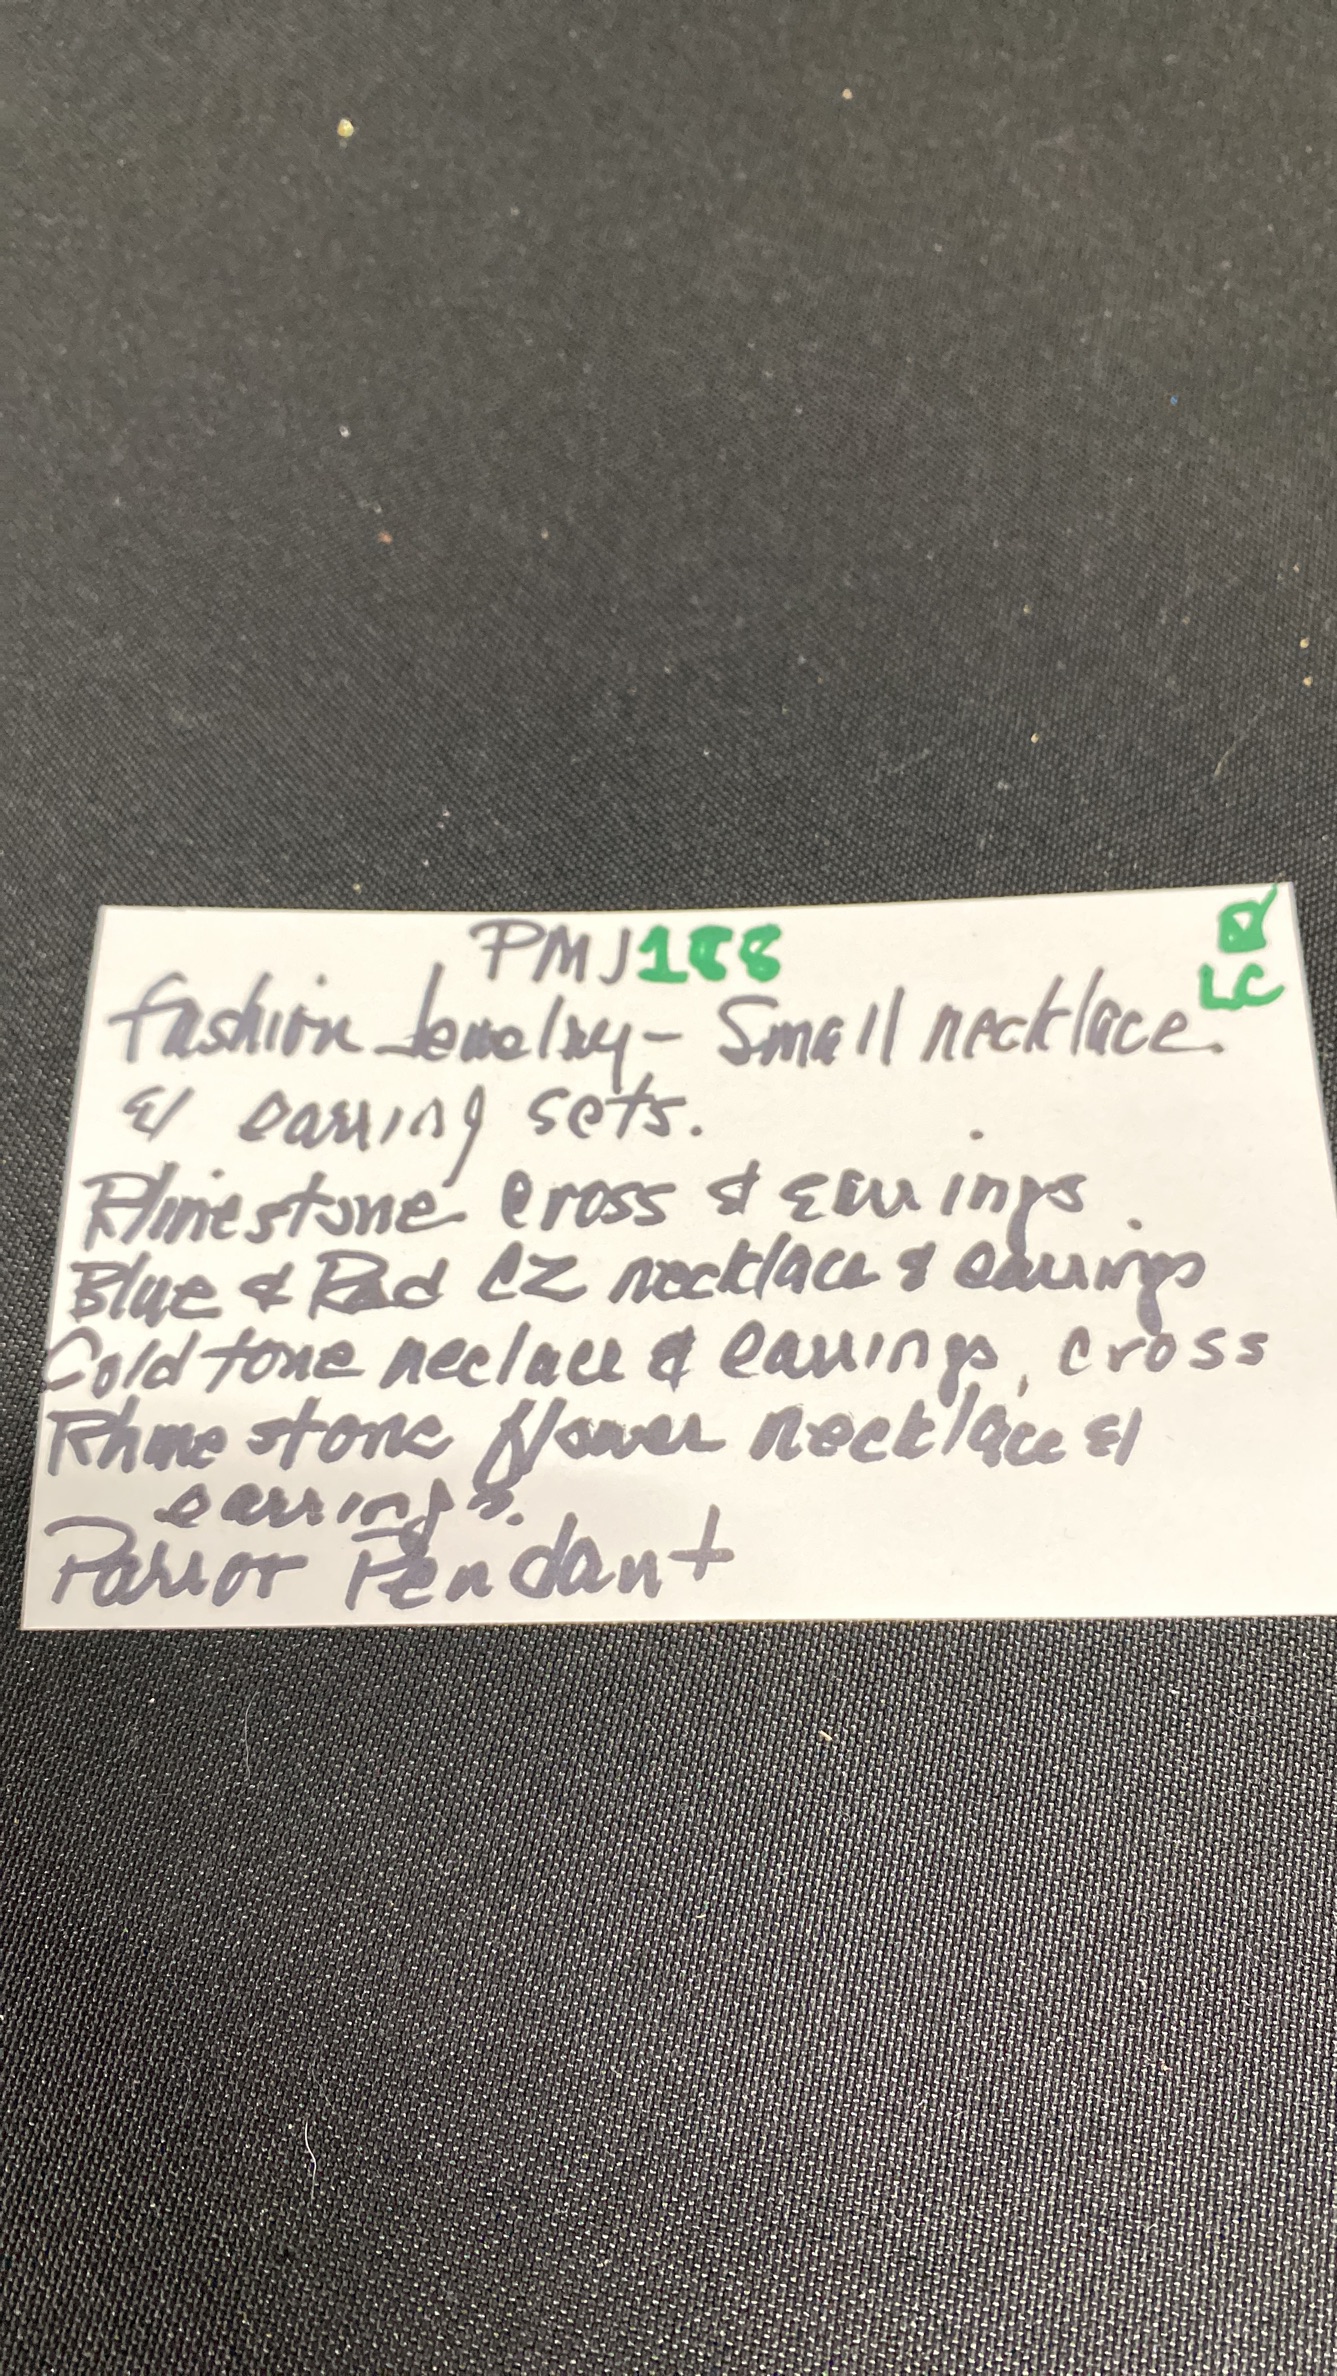 PMJ188
LC
Fashion Jewelry - Small necklace
& earring sets.
Rhinestone cross & Earrings
Blue & Red CZ necklace & earrings
Goldtone neclace & earrings, cross
Rhinestone flower necklace &
earrings.
Parrot Pendant